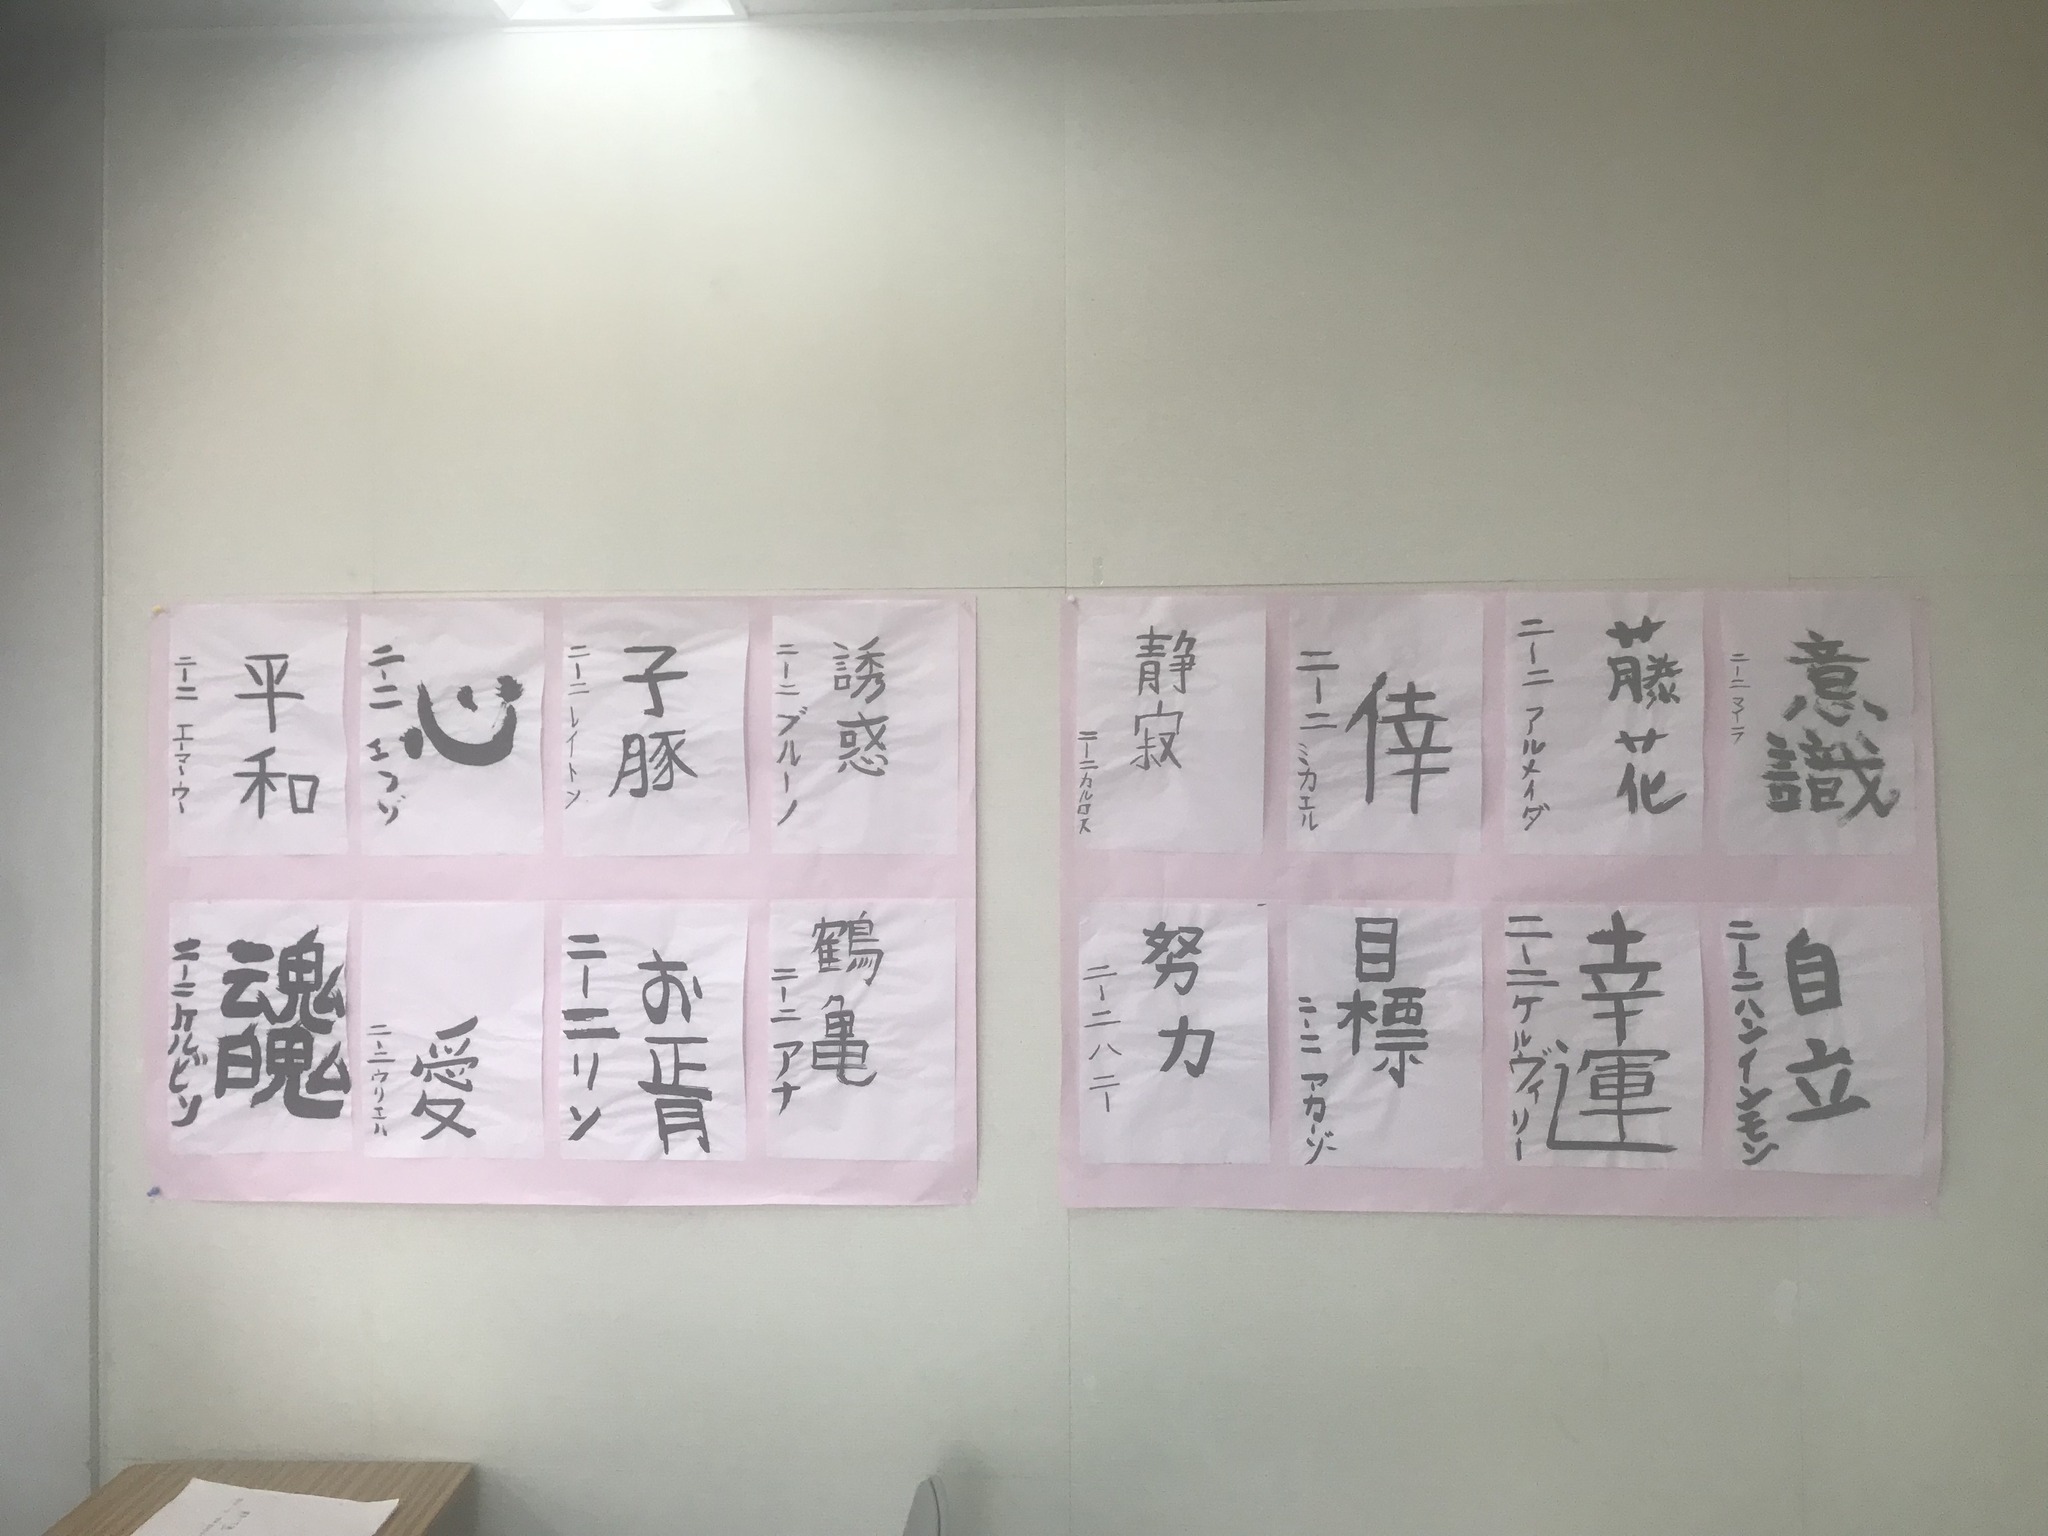 意識
二ー二 マイラ
藤花
二ー二 アルメイダ
倖
二ー二 ミカエル
静寂
二ー二カルロス
自立
二ー二ハンイーンモン
幸運
二ー二ケルヴィリー
目標
二ー二 アカーゾ
努力
二ー二 ハニー
誘惑
二ー二 ブルーノ
子豚
二ー二 レイトン
心
二ー二
平和
二ー二 エーマーウー
鶴亀
二ー二 アナ
お正月
二ー二 リン
愛
二ー二ウリエル
魂魄
二ー二ケルビン